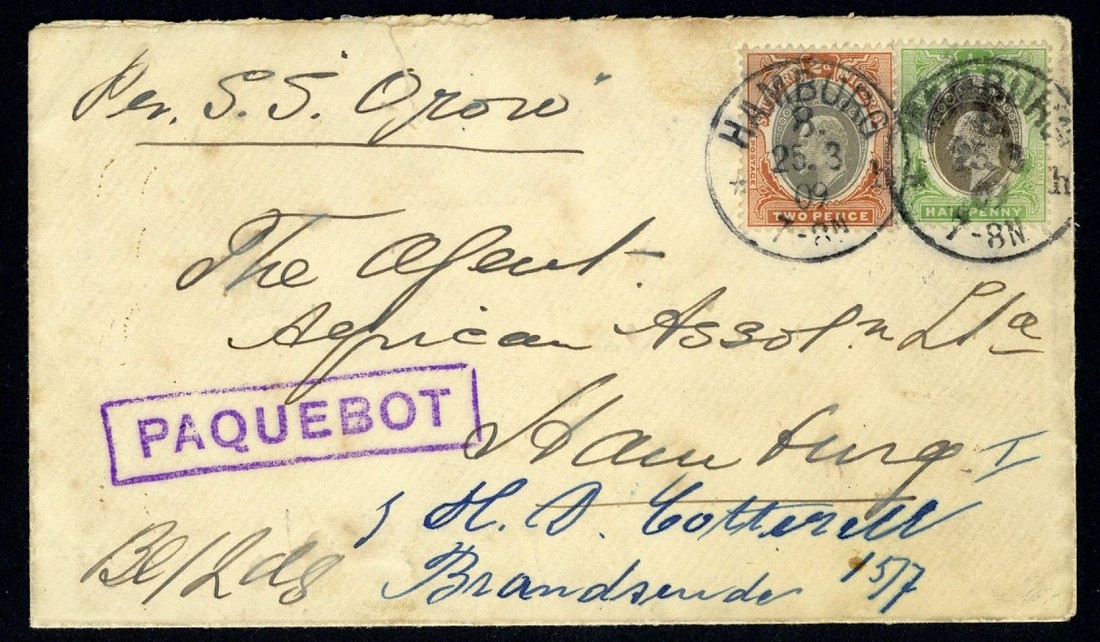 Per. S.S. "Oron"
HAMBURG
8.
25.3
09
7-8N
TWO PENCE
POSTAGE
HAMBURG
25
09
7-8N
h
HALFPENNY
The Agent
African Assoln Ltd
PAQUEBOT
Hamburg I
H. D. Cotterell
Brandsende 15/7